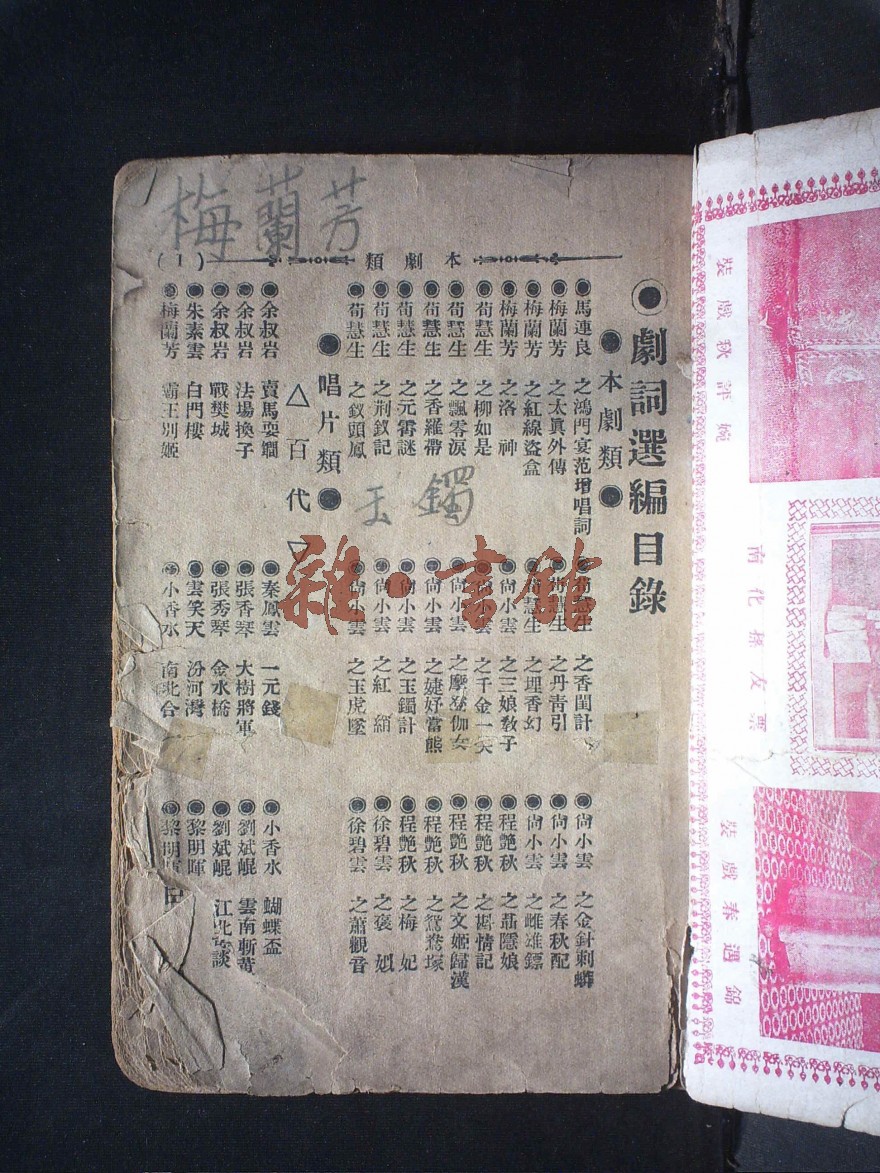 梅蘭芳
本劇類
(1)
◉劇詞選編目錄
●本劇類●
◉馬連良 之鴻門宴范增唱詞
◉梅蘭芳 之太眞外傳
◉梅蘭芳 之紅線盜盒
◉梅蘭芳 之洛神
◉荀慧生 之柳如是
◉荀慧生 之飄零淚
◉荀慧生 之香羅帶
◉荀慧生 之元宵謎
◉荀慧生 之荆釵記
◉荀慧生 之釵頭鳳
◉荀慧生 之香閨計
◉荀慧生 之丹靑引
◉荀慧生 之埋香幻
◉尙小雲 之三娘敎子
◉尙小雲 之千金一笑
◉尙小雲 之摩登伽女
◉尙小雲 之婕妤當熊
◉尙小雲 之玉鐲計
◉尙小雲 之紅綃
◉尙小雲 之玉虎墜
◉尙小雲 之金針刺蟒
◉尙小雲 之春秋配
◉尙小雲 之雌雄鏢
◉程艷秋 之聶隱娘
◉程艷秋 之斟情記
◉程艷秋 之文姬歸漢
◉程艷秋 之鴛鴦塚
◉程艷秋 之梅妃
◉徐碧雲 之褒姒
◉徐碧雲 之蕭觀音
玉鐲
●唱片類●
△百代▽
◉余叔岩 賣馬耍鐗
◉余叔岩 法場換子
◉余叔岩 戰樊城
◉朱素雲 白門樓
◉梅蘭芳 霸王別姬
◉秦鳳雲 一元錢
◉張香琴 大樹將軍
◉張秀琴 金水橋
◉雲笑天 汾河灣
◉小香水 南北合
◉小香水 蝴蝶盃
◉劉斌崐 雲南斬蕾
◉劉斌崐 江北 談
◉黎明暉
◉黎明暉
雜·書館
婉評秋戲裝
票友孫化南
錦遇春戲裝